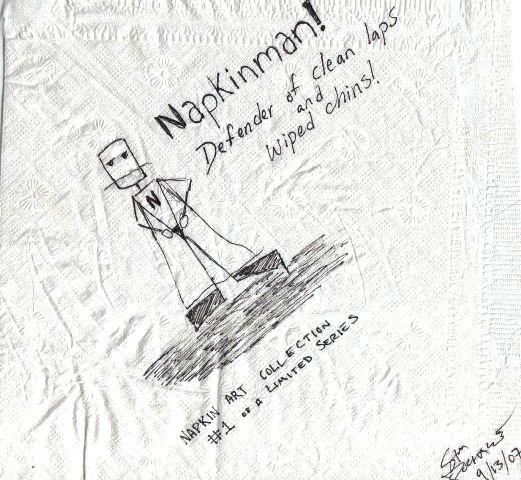 Napkinman!
Defender of clean laps
and
Wiped chins!
N
NAPKIN ART COLLECTION
#1 OF A LIMITED SERIES
9/13/07